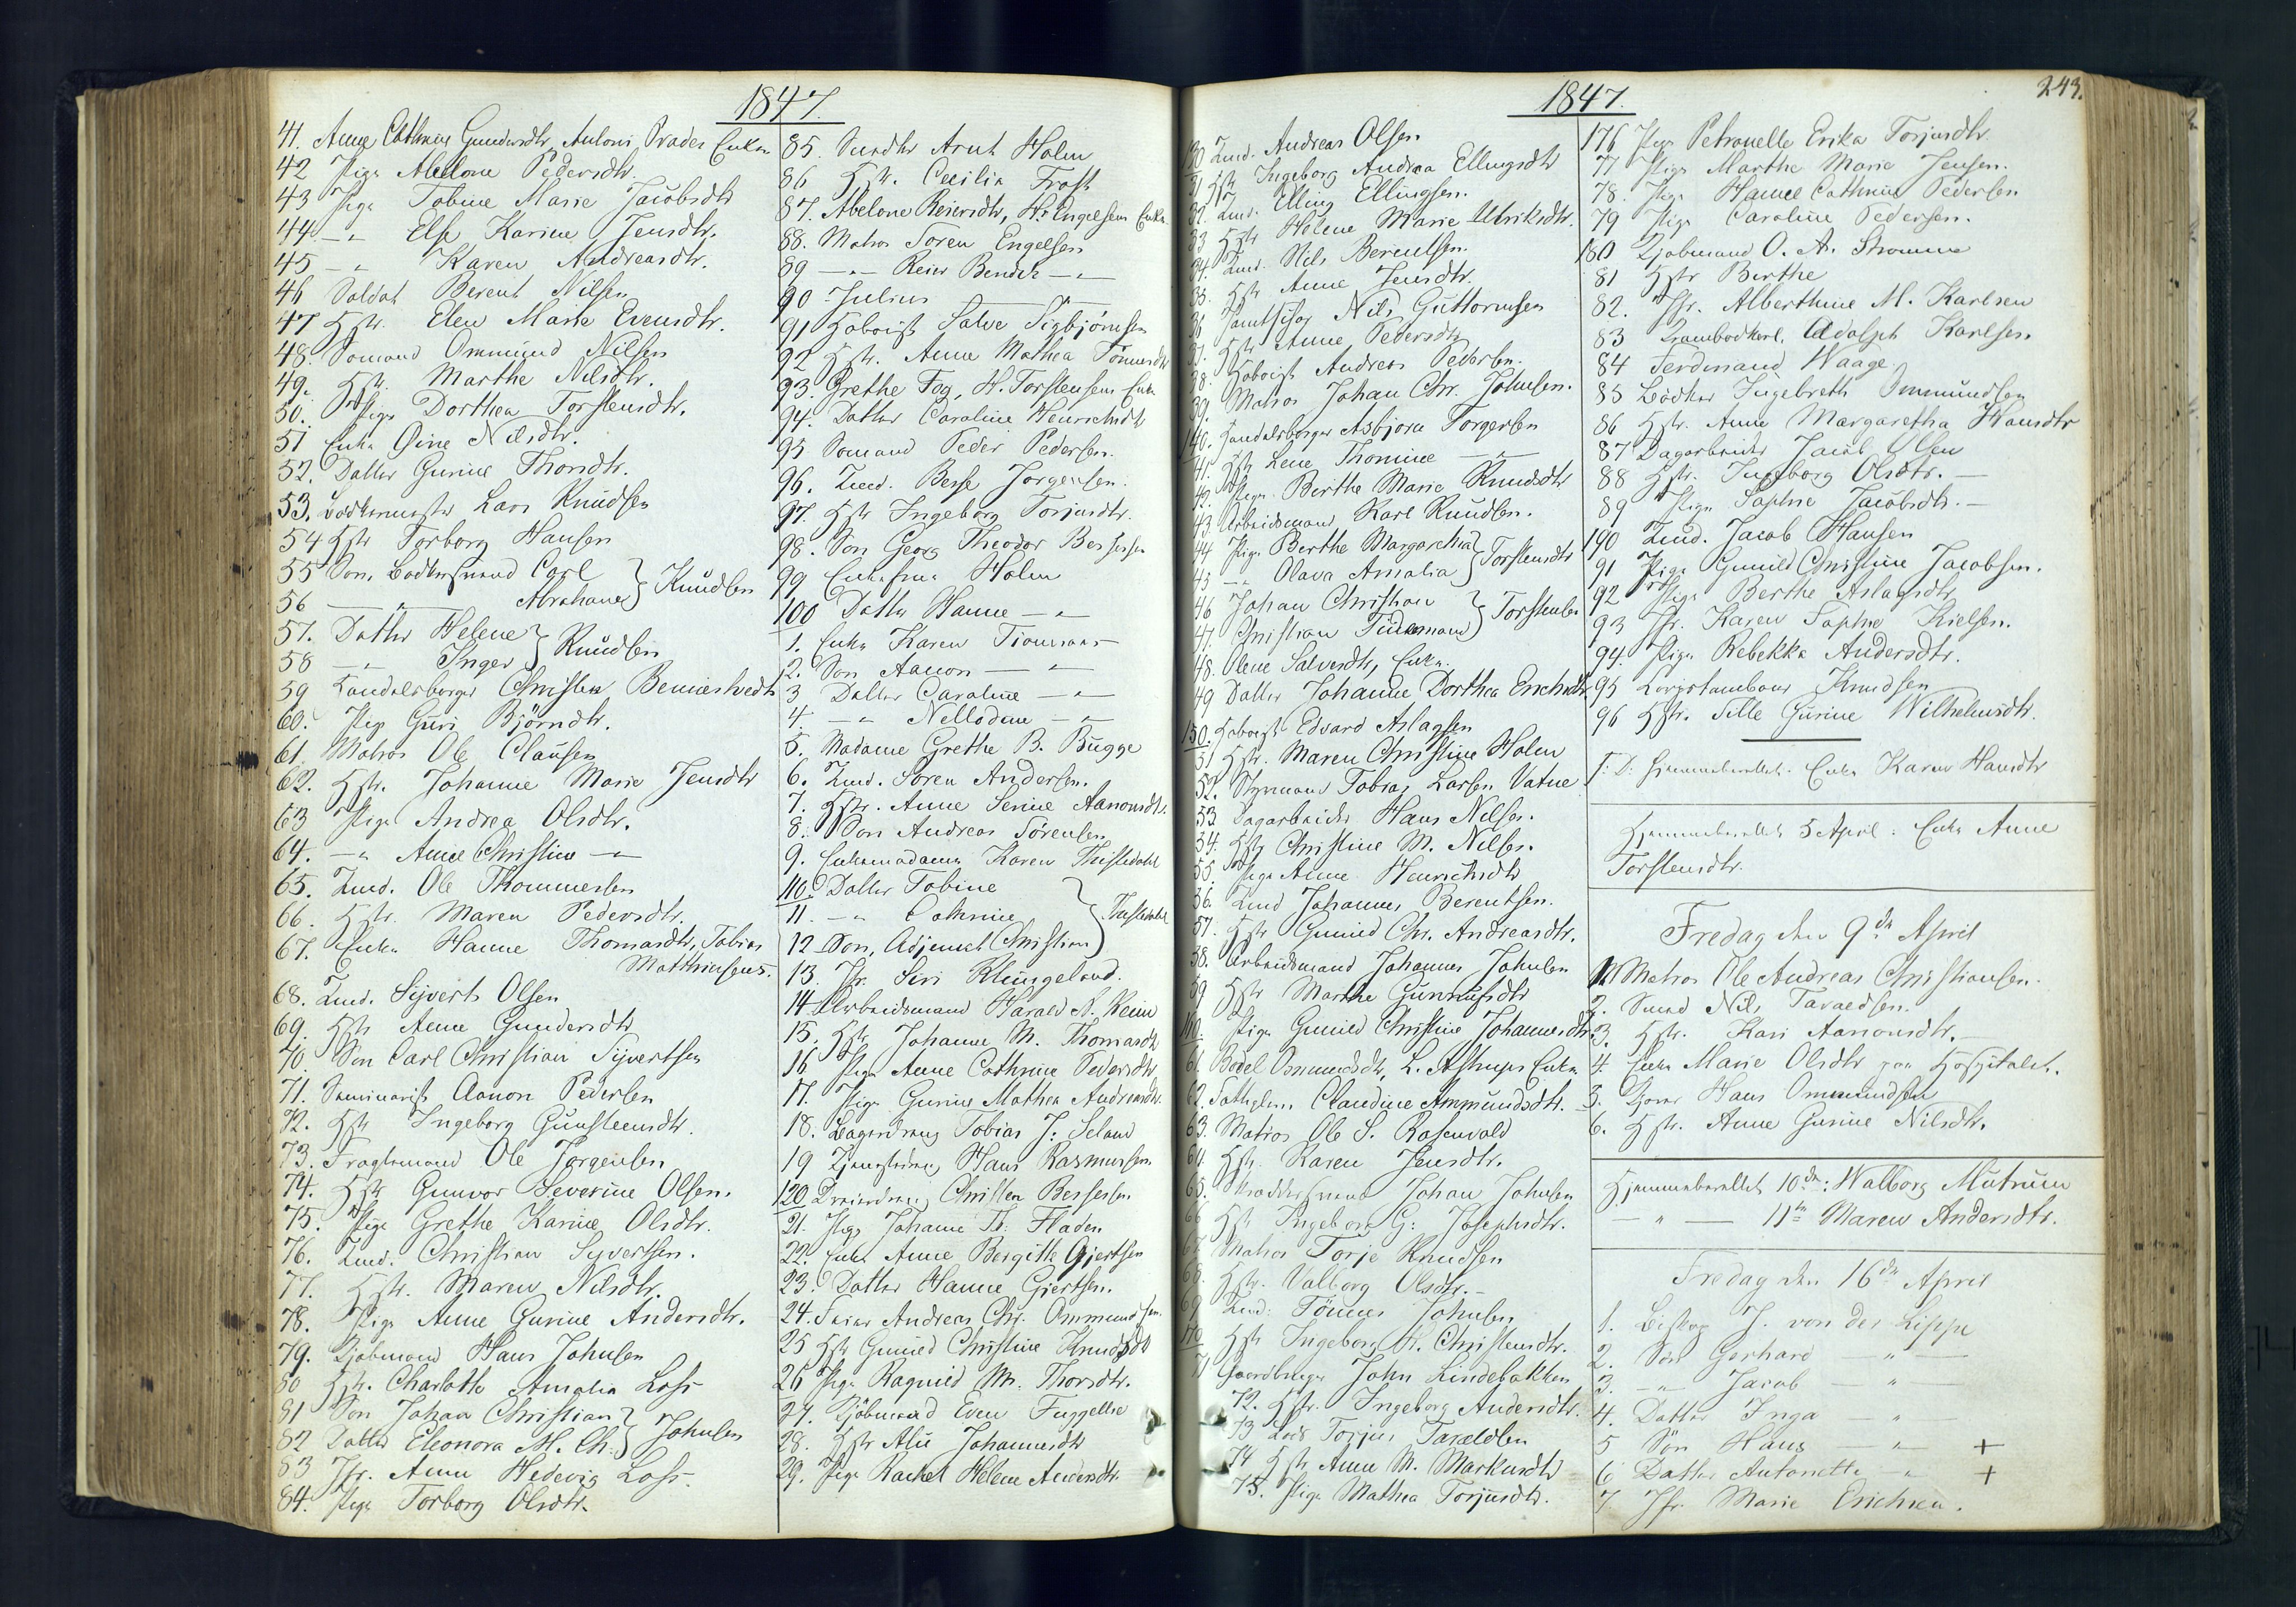 1847.
41. Anne Cathrine Gundersdtr, Antoni Prades Enke
42 Pige Abelone Pedersdtr.
43 Pige Tobine Marie Jacobsdtr
44 -"- Else Karine Jensdtr.
45 -"- Karen Andreasdtr.
46 Soldat Berent Nilsen
47 Hstr. Elen Marie Evensdtr.
48. Sømand Ommund Nilsen
49. Hstr. Marthe Nilsdtr.
50. Pige Dorthea Torstensdtr.
51 Enke Gine Nilsdtr.
52. Datter Gurine Thorsdtr.
53. Bødkermester Lars Knudsen
54 Hstr Torborg Hansen
55 Søn, Bødkersvend Carl } Knudsen
56 —"— Abraham
57. Datter Helene } Knudsen
58 —"— Inger
59 Handelsborger Christen Bennestvedt
60. Pige Guri Bjørnsdtr.
61. Matros Ole Clausen
62. Hstr. Johanne Marie Jensdtr
63 Pige Andrea Olsdtr.
64. -"- Anne Christine -"-
65. Lmd. Ole Thommesen
66. Hstr. Maren Pedersdtr.
67. Enke Hanne Thomasdtr, Tobias
Matthiesens.
68. Lmd. Sijvert Olsen
69. Hstr Anne Gundersdtr
70. Søn Carl Christian Sijvertsen
71. Seminarist Aanon Pedersen
72. Hstr Ingeborg Gunsteensdtr.
73. Fragtemand Ole Jørgensen
74. Hstr Gunvor Severine Olsen.
75. Pige Grethe Karine Olsdtr.
76. Lmd. Christian Syvertsen.
77. Hstr. Maren Nilsdtr.
78. Pige Anne Gurine Andersdtr.
79. Kjøbmand Hans Johnsen
80 Hstr. Charlotte Amalia Loss
81 Søn Johan Christian } Johnsen
82 Datter Eleonora M. Ch.
83 Jfr. Anne Hedevig Loss.
84. Pige Torborg Olsdtr.
85. Arnt Holm
86 Hstr. Cecilia Frost
87. Abelone Reiersdtr, H. Engelsens Enke
88. Matros Søren Engelsen
89 —"— Reier Bendik —"—
90 Julius —"—
91 Hoboist Salve Sigbjørnsen
92 Hstr. Anne Mathea Tønnesdtr
93. Grethe Foy, H. Torstensens Enke
94. Datter Caroline Henrichsdtr
95 Sømand Peder Pedersen.
96. Lmd. Besse Jørgensen.
97. Hstr Ingeborg Torjusdtr.
98. Søn Georg Theodor Bessesen
99 Enkefrue Holm
100 Datter Hanne —"—
1. Enke Karen
2. Søn Aanon —"—
3 Datter Caroline —"—
4. —"— Nellodine —"—
5. Madame Grethe B. Bugge
6. Lmd. Søren Andersen.
7. Hstr. Anne Serine Aanonsdtr.
8. Søn Andreas Sørensen
9. Enkemadame Karen Thistedahl
110. Datter Tobine
11. —"— Cathrine } Thistedahl
12 Søn, Adjunct Christian
13. Jfr. Siri Klungeland.
14 Arbeidsmand Harald N. Reim
15. Hstr Johanne M. Thomasdtr
16 Pige Anne Cathrine Pedersdtr
17. Pige Gurine Mathea Andreasdtr.
18. Bagerdreng Tobias J. Seland
19 Hans Rasmussen
120 Dreierdreng Christen Bessesen
21. Pige Johanne Th: Fladen
22. Enke Anne Bergitte Gjertsen
23. Datter Hanne Gjertsen.
24. Andreas Chr. Ommundsen.
25 Hstr Gunild Christine Knudsdtr
26 Pige Ragnild M. Thorsdtr.
27. Kjøbmand Even Fuggellie
28. Hstr Alis Johannesdtr
29. Pige Rachel Helene Andersdtr.
1847.
243.
130 Lmd. Andreas Olsen
31 Hstr Ingeborg Andrea Ellingsdtr
32. Lmd. Elling Ellingsen.
33 Hstr Helene Marie Ulriksdtr.
34. Lmd. Nils Berentsen.
35. Hstr Anne Jensdtr.
36 Nils Guttormsen
37. Hstr Anne Pedersdtr
38. Hoboist Andreas Pedersen.
39. Matros Johan Chr. Johnsen.
140. Handelsborger Asbjørn Torgersen
41. Hstr Lene Thomine —"—
42. Pige Berthe Marie Knudsdtr
43 Arbeidsmand Karl Knudsen.
44 Pige Berthe Margarethe } Torstensdtr
45 —"— Olava Amalia
46 Johan Christian } Torstensen
47. Christian Tidemand
48. Olene Salvesdtr, Enke.
49 Datter Johanne Dorthea Erichsdtr
150. Hoboist Edvard Aslagsen
51 Hstr. Maren Christine Holm
52. Styrmand Tobias Larsen Vatne
53. Dagarbeider Hans Nilsen.
54. Hstr Christine M. Nilsen.
55. Pige Anne Henrichsdtr
56. Lmd Johannes Berentsen.
57. Hstr Gunild Chr. Andreasdtr.
58. Arbeidsmand Johannes Johnsen
59 Hstr Marthe Gunnufsdtr
160. Pige Gunild Christine Johannesdtr
61. Bodel Osmundsdtr, L. Astrups Enke
62. Claudine Ammundsdtr.
63. Matros Ole S. Rosenvold
64. Hstr. Karen Jensdtr.
65. Skræddersvend Johan Johnsen
66 Hstr Ingeborg G: Josephsdtr.
67 Matros Torje Knudsen
68. Hstr. Valborg Olsdtr.-
69 Lmd: Tønnes Johnsen
170 Hstr Ingeborg K. Christensdtr.
71 Gaardbruger John Lindebakken
72. Hstr. Ingeborg Andersdtr.
73 Lods Torjus Taraldsen
74 Hstr Anne M. Markusdtr
75. Pige Mathea Torjusdtr.
176 Pige Petronelle Erika Torjusdtr
77 Pige Marthe Marie Jensen.
78. Pige Hanne Cathrine Pedersen
79 Pige Caroline Pedersen.
180 Kjøbmand O. A. Strømme
81 Hstr Berthe
82. Jfr. Alberthine M. Karlsen
83 Krambodkarl. Adolph Karlsen.
84 Ferdinand Waage
85 Bødker Ingebreth Ommundsen
86 Hstr. Anne Margaretha Hansdtr
87 Dagarbeider Jacob Olsen
88 Hstr. Ingeborg Olsdtr. —
89 Pige Sophie Jacobsdtr. —
190 Lmd. Jacob Hansen
91 Pige Gunild Christine Jacobsen.
92 Pige Berthe Aslagsdtr
93 Jfr. Karen Sophie Kielsen.
94. Pige Rebekka Andersdtr.
95 Corpstambour Knudsen
96 Hstr. Sille Gurine Wilhelmsdtr.
S: D: Hjemmeberettet. Enke Karen Hansdtr
Hjemmeberettet 5 April: Enke Anne
Torstensdtr.
Fredag den 9de April
1. Matros Ole Andreas Christiansen.
2. Smed Nils Taraldsen.
3. Hstr. Kari Aanonsdtr.
4. Enke Marie Olsdtr paa Hospitalet.
5. Hans Ommundsen
6. Hstr. Anne Gurine Nilsdtr.
Hjemmeberettet 10de: Walborg Mutrum
—"— 11te Maren Andersdtr.
Fredag den 16de April
1. Biskop J. von der Lippe
2. Søn Gerhard —"—
3. —"— Jacob —"—
4. Datter Inga —"—
5 Søn Hans —"— +
6 Datter Antonette —"— +
7 Jfr. Marie Erichsen.